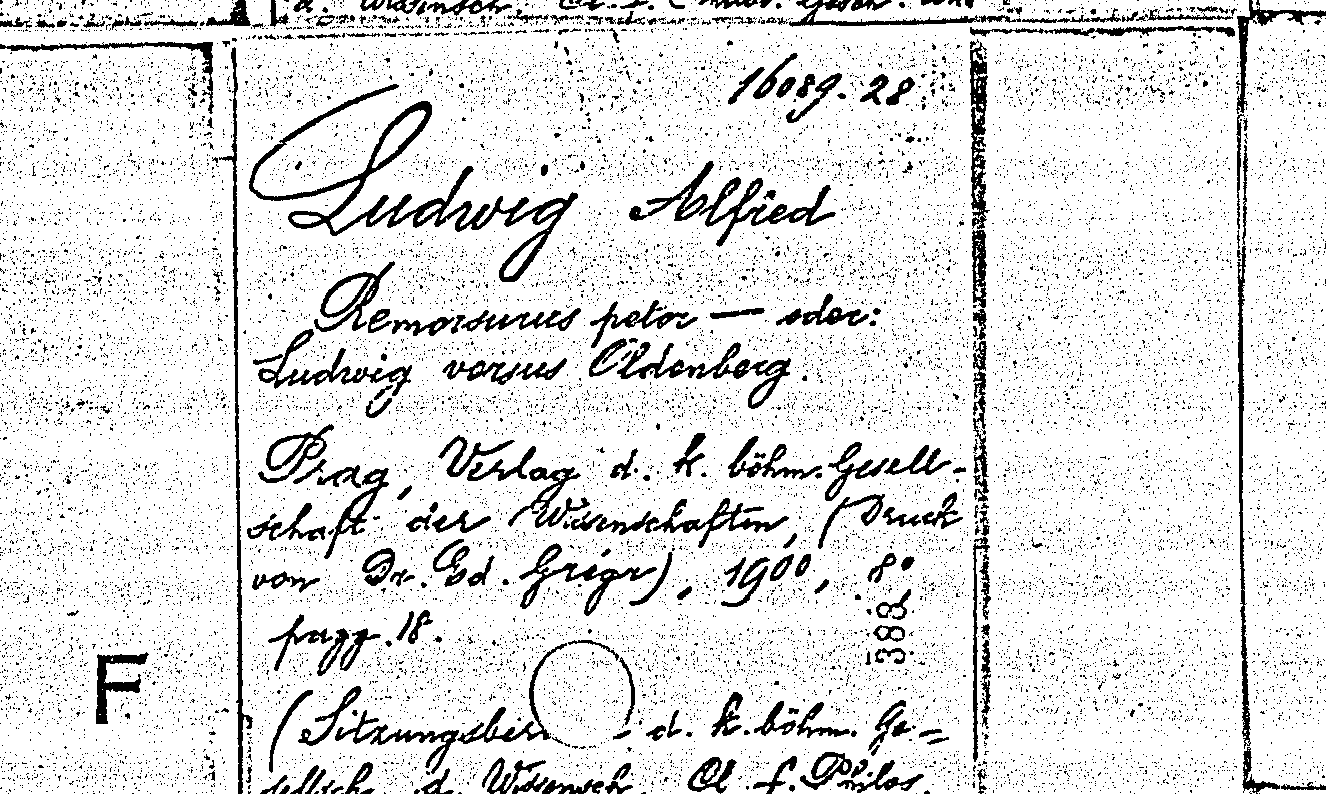 d. Wissensch. Cl. f.
16089. 28
Ludwig Alfred
Remorsurus petor — oder:
Ludwig versus Oldenberg.
Prag, Verlag d. k. böhm. Gesell-
schaft der Wissenschaften, (Druck
von Dr. Ed. Grégr), 1900, 8°
388
pagg. 18.
F
(Sitzungsber. d. k. böhm. Ge-
sellsch. d. Wissensch. Cl. f. Philos.